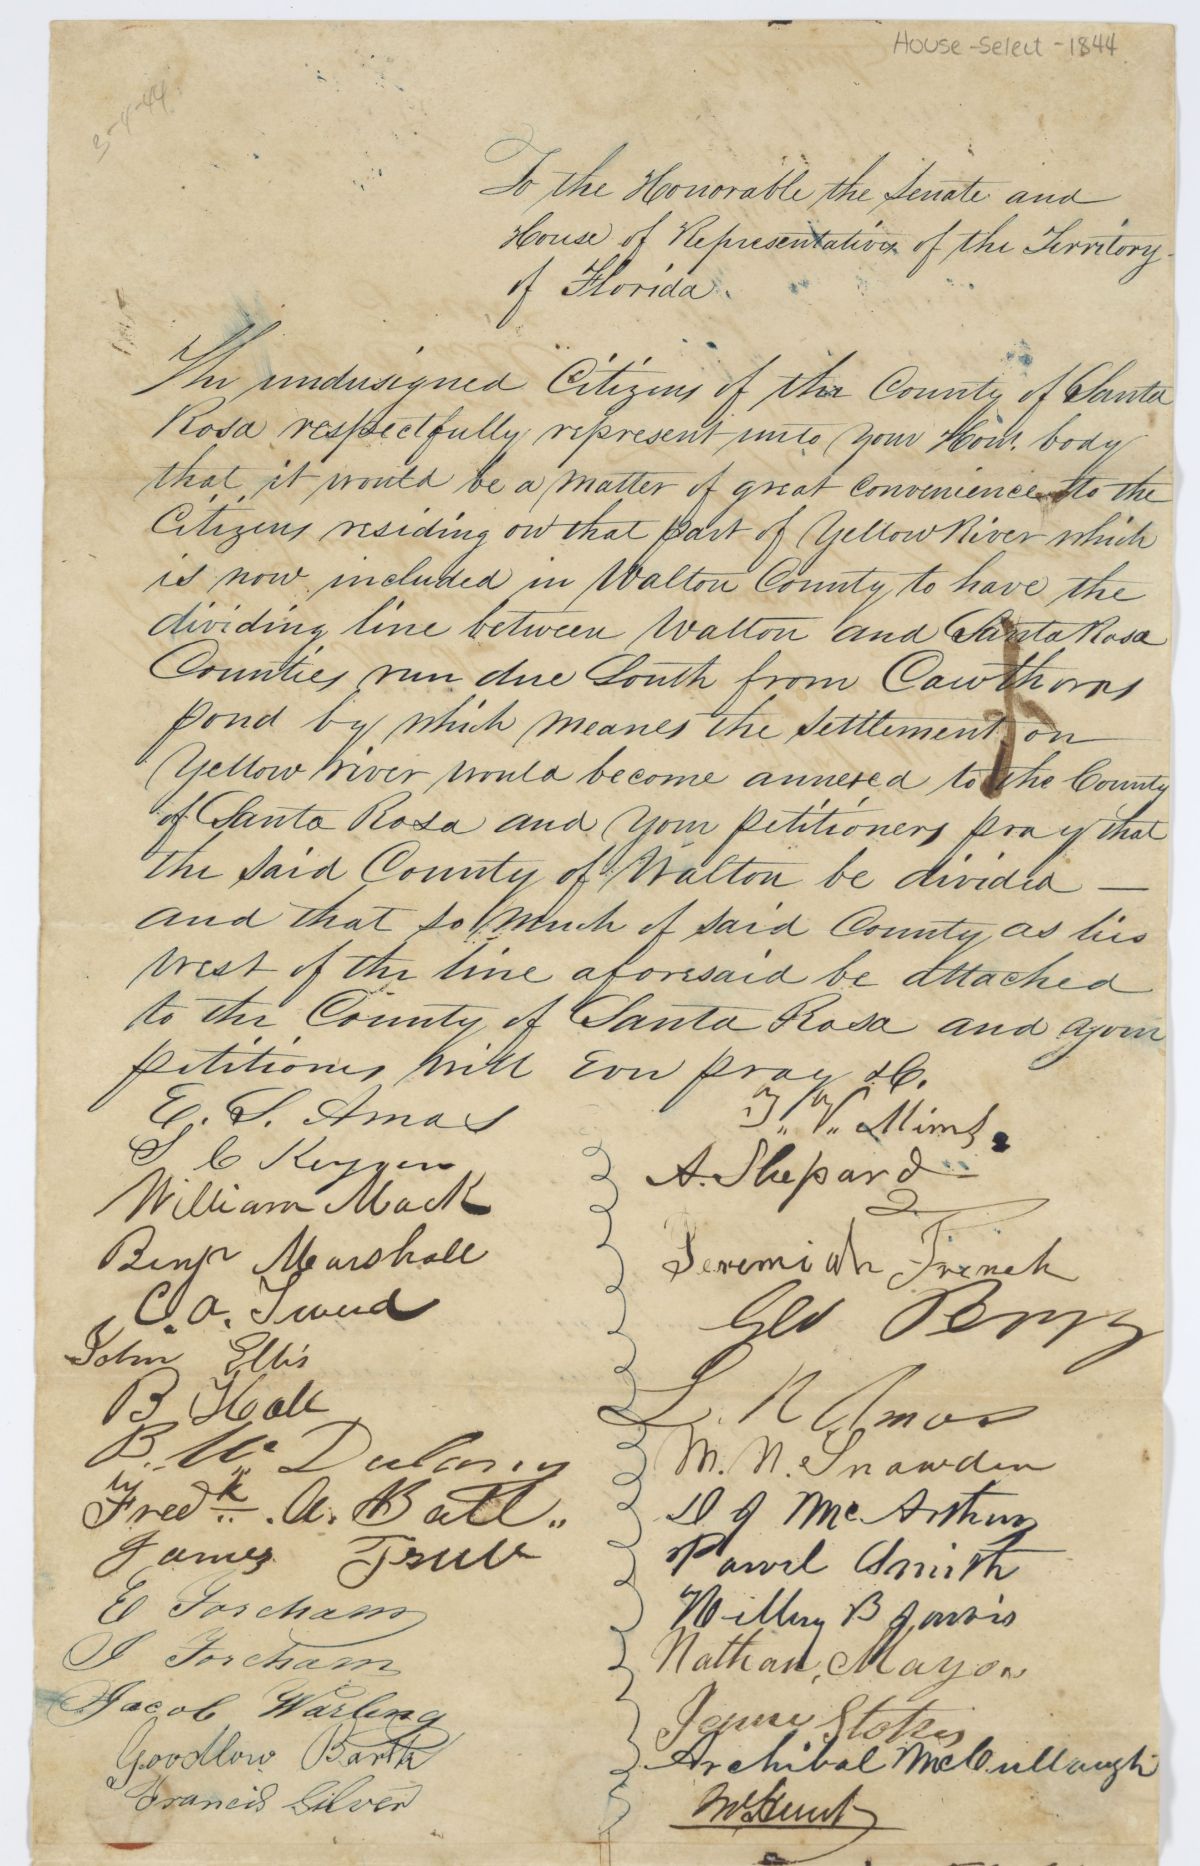 House-Select-1844
3-4-44
To the Honorable the Senate and
House of Representatives of the Territory
of Florida.
The undersigned Citizens of the County of Santa
Rosa respectfully represent unto your Hon. body
that it would be a matter of great convenience to the
Citizens residing on that part of Yellow River which
is now included in Walton County to have the
dividing line between Walton and Santa Rosa
Counties run due South from Cawthorns
pond by which meanes the settlement on
Yellow river would become annexed to the County
of Santa Rosa and your petitioners pray that
the said County of Walton be divided —
and that so much of said County as lies
west of the line aforesaid be attached
to the County of Santa Rosa and your
petitioners will ever pray &C.
E. S. Amos
S C
William Mack
Benjn Marshall
C. A. Tweed
John Ellis
B Hall
B. Mc
Fredk. A. Batt
James
E Forcham
J Forcham
Jacob Warling
Goodlow Barth
Francis Silver
T. W. Mims
A. Shepard
Jeremiah French
Geo Perry
L. N Amos
M. N. Snowden
D J McArthur
Powel Smith
Willey B Jarvis
Nathan Mayo
Stokes
Archibal McCullough